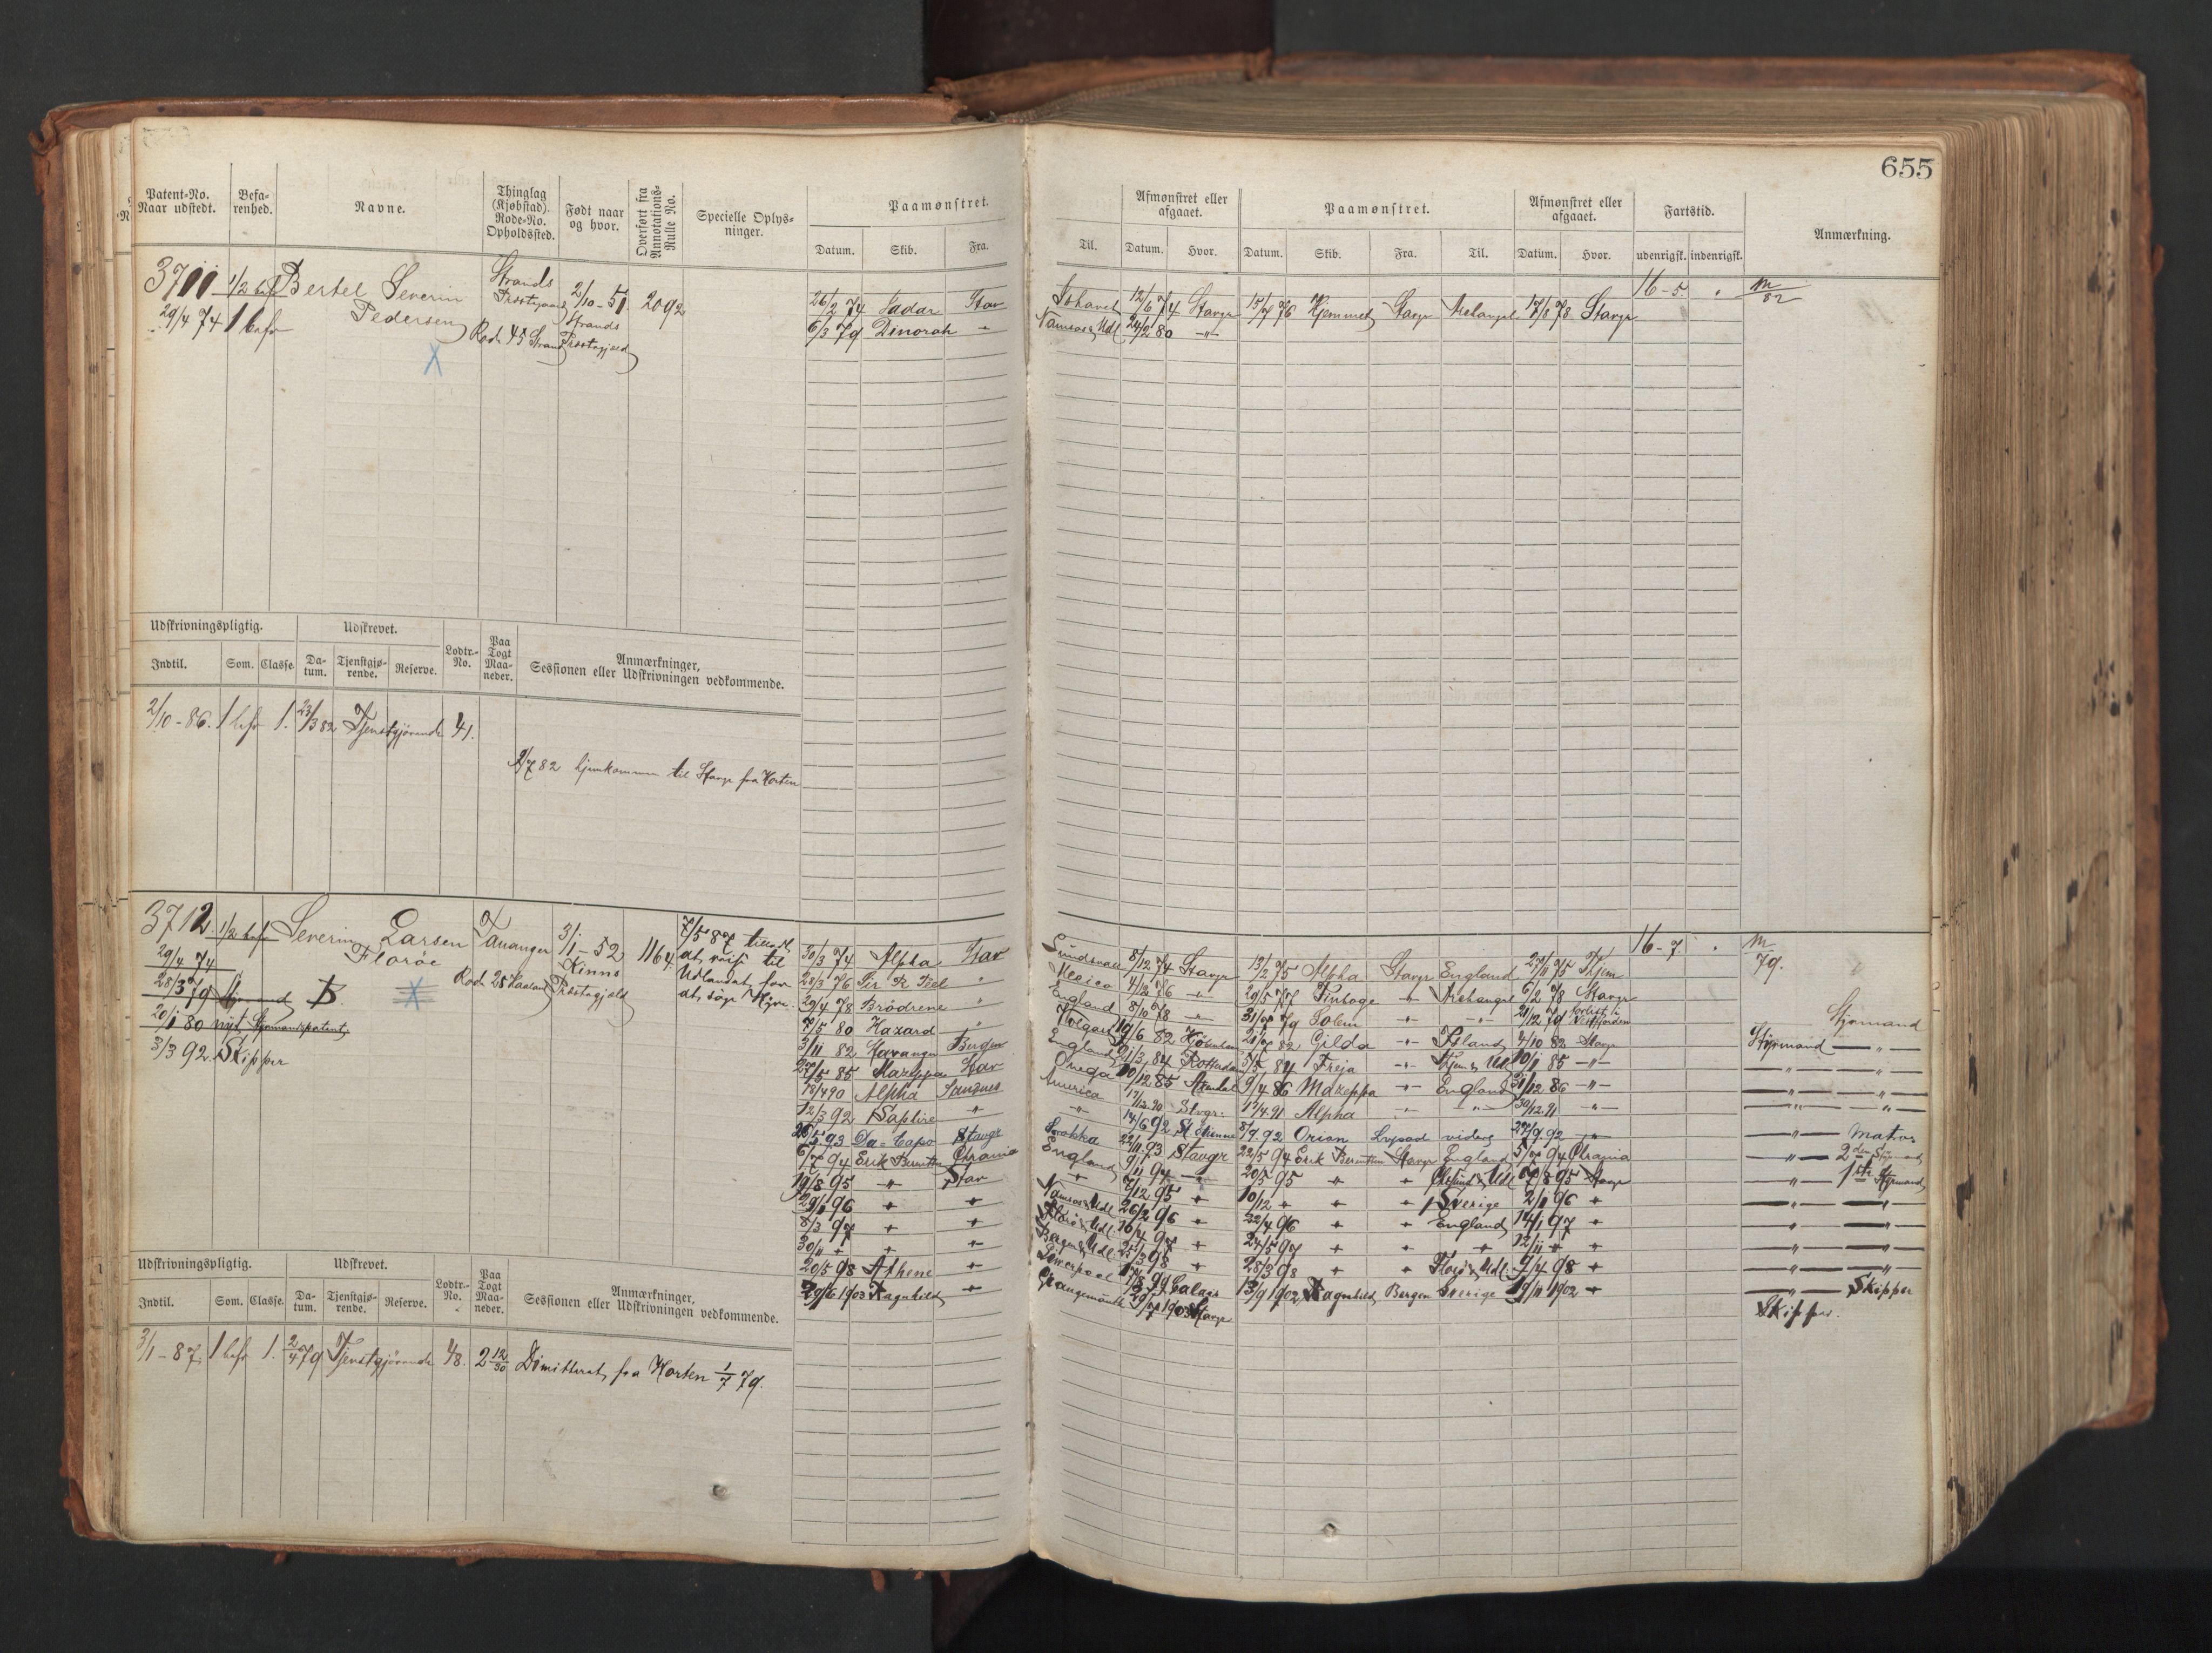 655
Patent-No.
Naar udstedt.
Befa-
renhed.
Navne.
Thinglag
(Kjøbstad).
Rode-No.
Opholdssted.
Født naar
og hvor.
Overført fra
Annotations-
Rulle No.
Specielle Oplys-
ninger.
Paamønstret.
Datum. Skib. Fra.
Til.
Afmønstret eller
afgaaet.
Datum. Hvor.
Paamønstret.
Datum. Skib. Fra. Til.
Afmønstret eller
afgaaet.
Datum. Hvor.
Fartstid.
udenrigsk. indenrigsk.
Anmærkning.
3711
29/4 74
1/2 bef
1 befr
Bertel Severin
Pedersen
Strands
Præstegjæld
Rod. 45 Strand
2/10 - 51
Strands
Præstegjæld
2092
26/2 74 Jadar Stav
12/6 74 Stavgr 15/7 76 Hjemmet Stavgr Archangel 17/8 78 Stavgr
16 - 5.
M
82
6/3 79 Dinorah "
Namsos & Udl 24/2 80 - " -
Udskrivningspligtig.
Indtil. Som. Classe.
Udskrevet.
Da-
tum.
Tjenstgjø-
rende.
Reserve.
Lodtr.-
No.
Paa
Togt
Maa-
neder.
Anmærkninger,
Sessionen eller Udskrivningen vedkommende.
2/10 - 86. 1 befr 1. 23/3 82 Tjenstgjørende 41.
2/7 82 hjemkommen til Stavgr fra Horten
3712
29/4 74
28/3 79 Styrmand B.
20/1 80 nyt Styrmandspatent
3/3 92 Skipper
1/2 befr
Severin Larsen
Florøe
Tananger
Rod. 25 Haaland
3/1 - 52
Kinns
Præstegjæld
1164
7/5 87 tillodt
at reise til
Udlandet for
at søge Hyre.
16 - 7.
M
79.
30/3 74 Alpha Stav
Sundsvall 8/12 74 Stavgr 13/2 75 Alpha Stavgr England 27/11 75 Hjem
28/3 76 Sir R. Peel "
Mexico 4/2 76 - " - 29/5 77 Finboge - " - Archangel 6/2 78 Stavgr
29/4 78 Brödrene "
England 8/10 78 - " - 31/7 79 Solem - " - - " - 21/12 79 forlist i
Styrmand
7/5 80 Hazard "
Wolgast 19/6 82 Kjøbenhavn 21/7 82 Gilda - " - Island 4/10 82 Stavgr
Styrmand - " -
3/11 82 Bergen
England 21/3 84 Rotterdam 5/5 84 Freja - " - Hjem & Udl 10/1 85 - " -
- " - - " -
27/5 85 Mazeppa Stav
Onega 10/12 85 Arendal 9/4 86 Mazeppa - " - England 31/12 86 - " -
- " - - " -
12/4 90 Alpha Sandnes
America 17/12 90 Stvgr. 17/4 91 Alpha - " - - " - 30/12 91 - " -
- " - - " -
12/3 92 Saphire "
" 14/6 92 St. Etienne 8/7 92 Orion Lvpool videre 27/9 92 - " -
- " - Matros
26/5 93 Da-Capo Stavgr
22/11 93 Stavgr 22/5 94 Erik Berentsen Stavgr England 5/7 94 Chrania
- " - 2den Styrmand
6/7 94 Erik Berentsen Chrania
England 9/11 94 - " - 20/5 95 " " Chrsund & Udl 6/8 95 Stavgr
" 1ste Styrmand
19/8 95 " Stav
" 7/12 95 " 10/12 " " " Sverige 2/1 96 "
- " - - " -
29/1 96 " "
Namsos & Udl 26/2 96 " 22/4 96 " " England 14/1 97 "
- " - - " -
8/3 97 " "
Florø & Udl 16/4 97 " 24/5 97 " " " 12/11 " "
- " - - " -
30/11 " " "
Bergen & Udl 25/3 98 " 28/3 98 " " Florø & Udl. 9/4 98 "
- " - - " -
20/5 98 Athene "
Liverpool 17/8 99 Calais 13/9 1902 Ragnhild Bergen Sverige 19/11 1902 "
- " - Skipper
29/6 1903 Ragnhild "
Grangemouth 29/7 1903 Stavgr
Skipper.
Udskrivningspligtig.
Indtil. Som. Classe.
Udskrevet.
Da-
tum.
Tjenstgjø-
rende.
Reserve.
Lodtr.-
No.
Paa
Togt
Maa-
neder.
Anmærkninger,
Sessionen eller Udskrivningen vedkommende.
3/1 - 87. 1 befr 1. 2/4 79 Tjenstgjørende 48. 2 12/30 Dimitteret fra Horten 1/7 79.